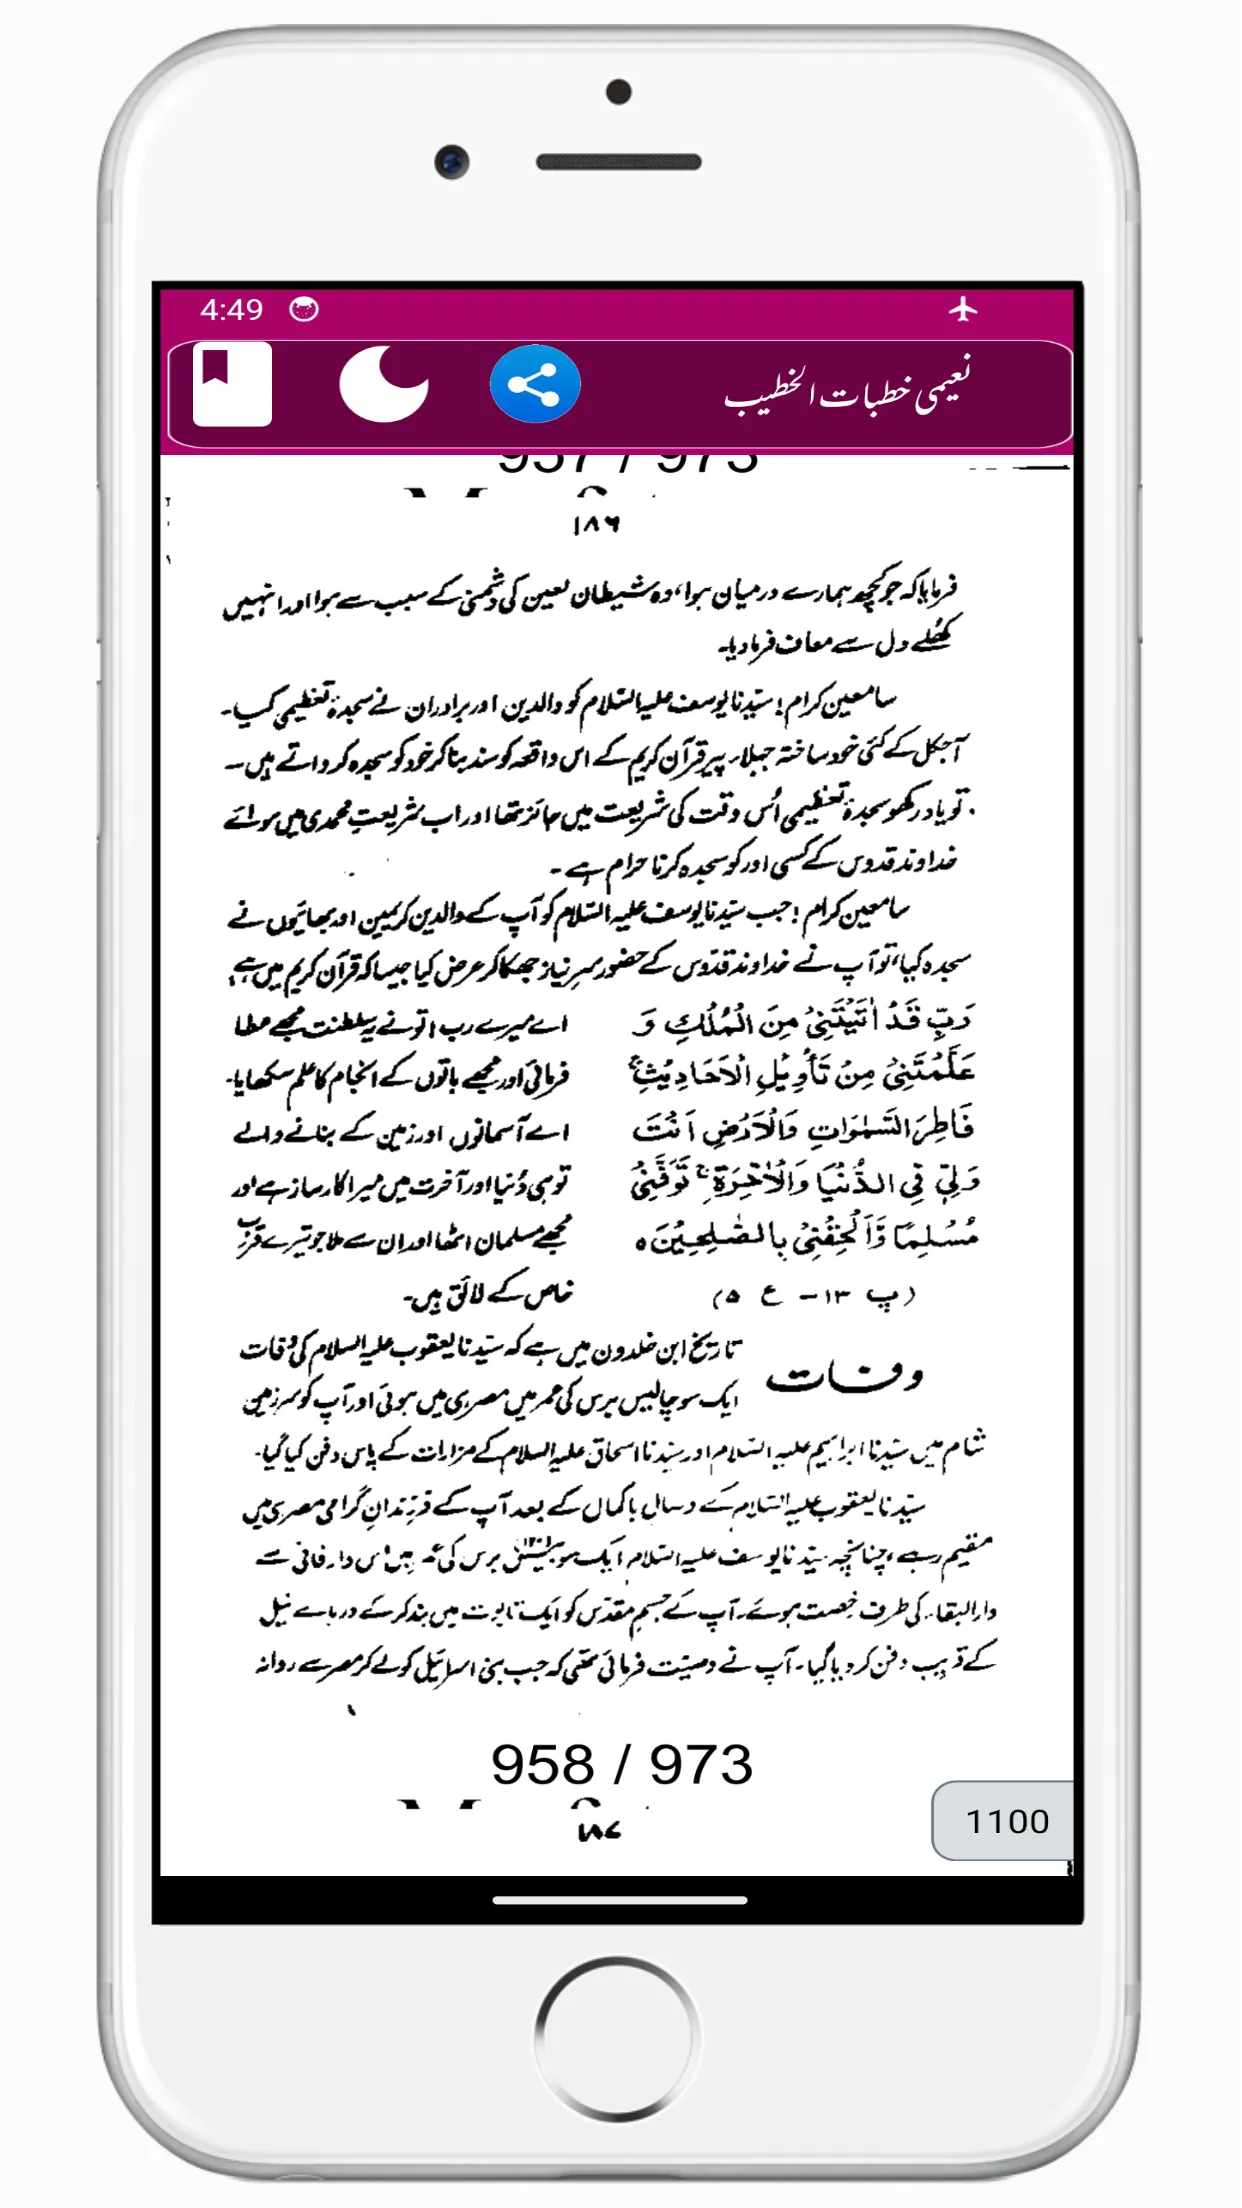 4:49
نعیمی خطبات الخطیب
957 / 973
۱۸۶
فرمایا کہ جو کچھ ہمارے درمیان ہوا، وہ شیطان لعین کی دشمنی کے سبب سے ہوا اور انہیں
کھُلے دل سے معاف فرما دیا۔
سامعین کرام! سیّدنا یوسف علیہ السّلام کو والدین اور برادران نے سجدۂ تعظیمی کیا۔
آجکل کے کئی خود ساختہ جہلاء پیر قرآن کریم کے اس واقعہ کو سند بنا کر خود کو سجدہ کرواتے ہیں۔
تو یاد رکھو سجدۂ تعظیمی اُس وقت کی شریعت میں جائز تھا اور اب شریعتِ محمدی میں سوائے
خداوند قدوس کے کسی اور کو سجدہ کرنا حرام ہے۔
سامعین کرام! جب سیّدنا یوسف علیہ السّلام کو آپ کے والدین کریمین اور بھائیوں نے
سجدہ کیا، تو آپ نے خداوند قدّوس کے حضور سرِ نیاز جھکا کر عرض کیا جیسا کہ قرآن کریم میں ہے،
رَبِّ قَدْ اٰتَیْتَنِیْ مِنَ الْمُلْكِ وَ
عَلَّمْتَنِیْ مِنْ تَأْوِیْلِ الْاَحَادِیْثِ ۚ
فَاطِرَ السَّمٰوٰتِ وَالْاَرْضِ اَنْتَ
وَلِیّٖ فِی الدُّنْیَا وَالْاٰخِرَۃِ ۚ تَوَفَّنِیْ
مُسْلِمًا وَّاَلْحِقْنِیْ بِالصّٰلِحِیْنَ ہ
(پ ۱۳ - ع ۵)
اے میرے رب! تو نے یہ سلطنت مجھے عطا
فرمائی اور مجھے باتوں کے انجام کا علم سکھایا۔
اے آسمانوں اور زمین کے بنانے والے
تو ہی دُنیا اور آخرت میں میرا کارساز ہے اور
مجھے مسلمان اٹھا اور ان سے ملا جو تیرے قرب
خاص کے لائق ہیں۔
وفات
تاریخ ابن خلدون میں ہے کہ سیّدنا یعقوب علیہ السلام کی وفات
ایک سو چالیس برس کی عمر میں مصر ہی میں ہوئی اور آپ کو سرزمین
شام میں سیّدنا ابراہیم علیہ السّلام اور سیّدنا اسحاق علیہ السلام کے مزارات کے پاس دفن کیا گیا۔
سیّدنا یعقوب علیہ السّلام کے وصال باکمال کے بعد آپ کے فرزندانِ گرامی مصر ہی میں
مقیم رہے، چنانچہ سیّدنا یوسف علیہ السّلام ایک سو برس کی عمر میں اس دار فانی سے
دارالبقاء کی طرف رخصت ہوئے۔ آپ کے جسمِ مقدّس کو ایک تابوت میں بند کر کے دریائے نیل
کے قریب دفن کر دیا گیا۔ آپ نے وصیّت فرمائی تھی کہ جب بنی اسرائیل کو لے کر مصر سے روانہ
958 / 973
۱۸۷
1100